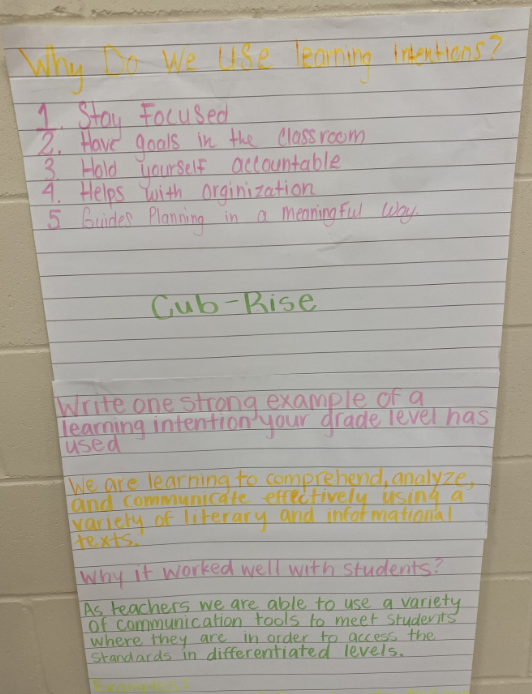 Why Do We Use learning Intentions?
1. Stay Focused
2. Have goals in the classroom
3. Hold yourself accountable
4. Helps with orginization
5. Guides Planning in a meaningful way.
Cub-Rise
Write one strong example of a
learning intention your grade level has
used
We are learning to comprehend, analyze,
and communicate effectively using a
variety of literary and informational
texts.
Why it worked well with students?
As teachers we are able to use a variety
of communication tools to meet students
where they are in order to access the
standards in differentiated levels.